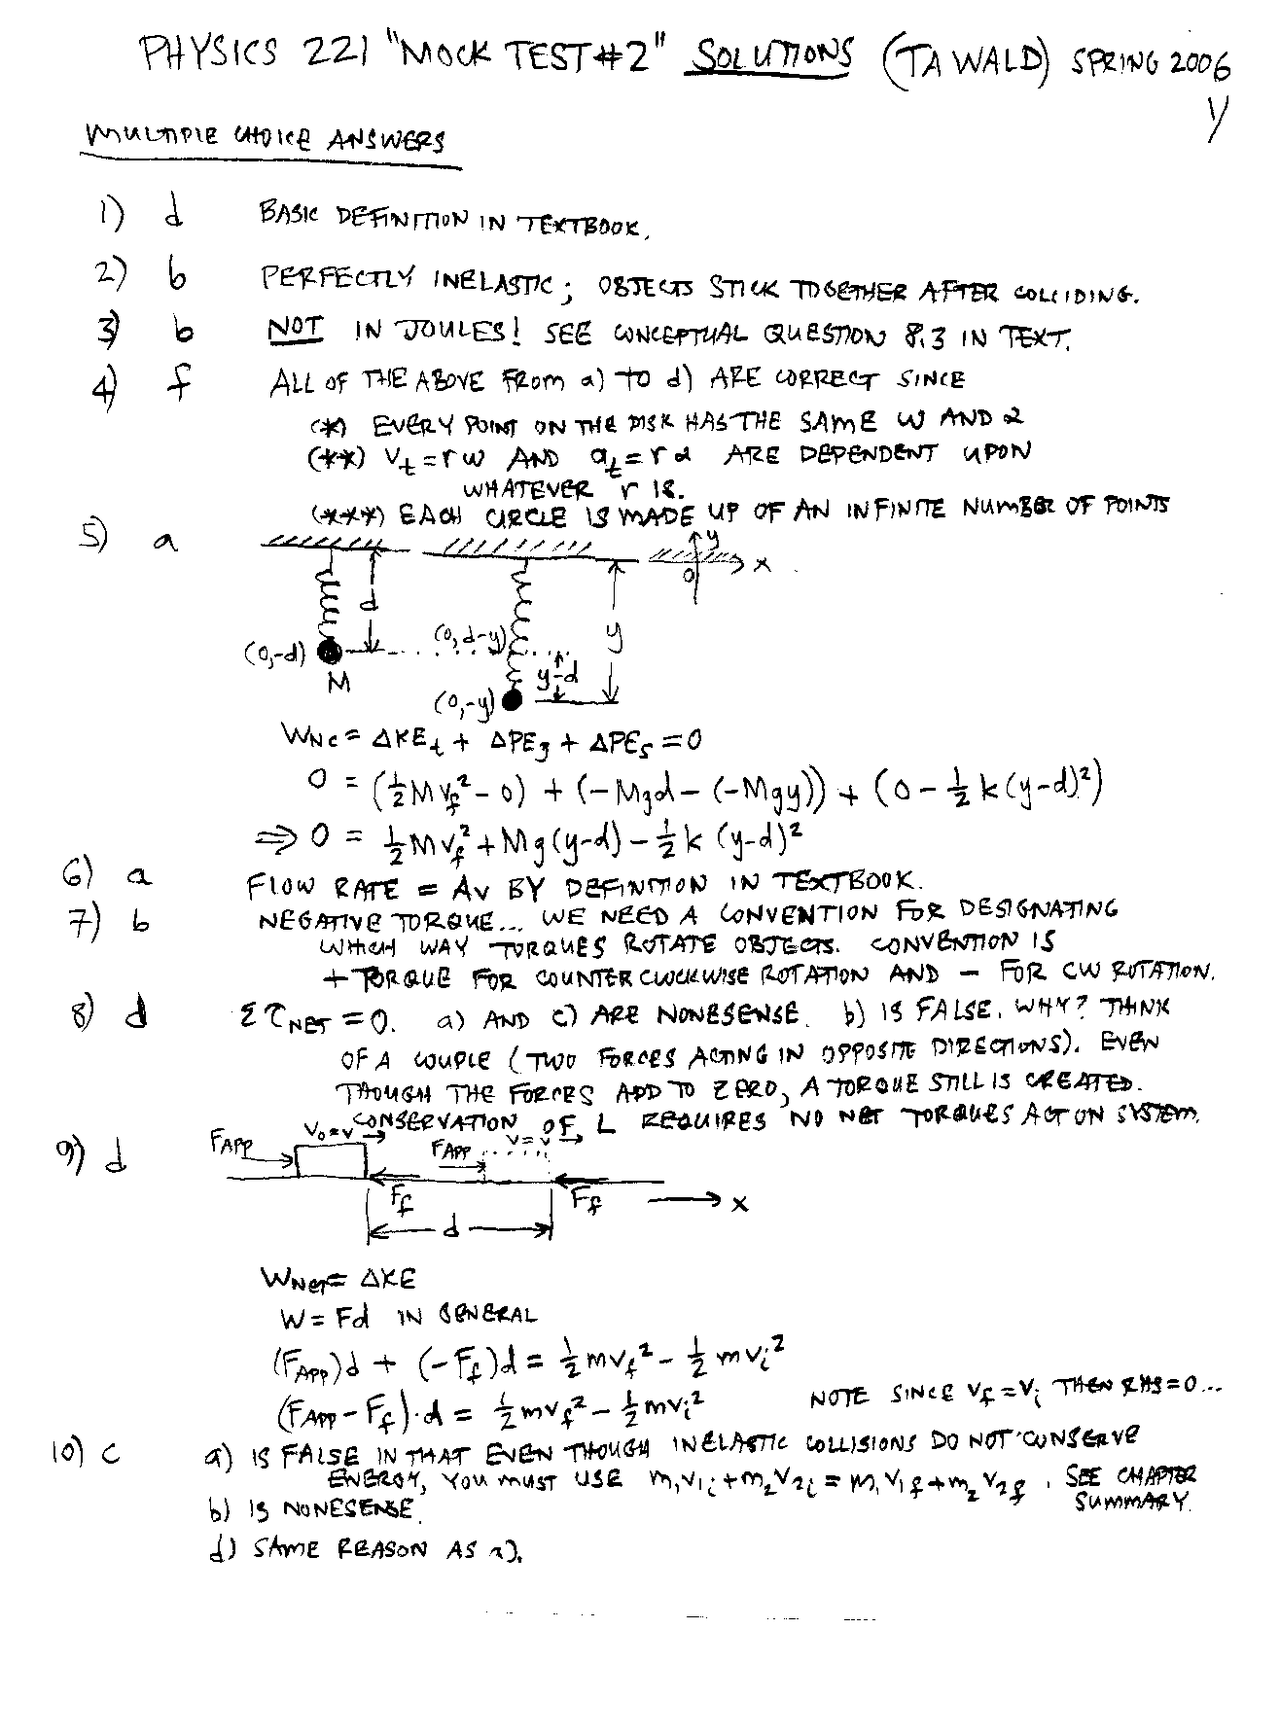 PHYSICS 221 "MOCK TEST #2" SOLUTIONS (TA WALD) SPRING 2006
1/
MULTIPLE CHOICE ANSWERS
1) d BASIC DEFINITION IN TEXTBOOK.
2) b PERFECTLY INELASTIC; OBJECTS STICK TOGETHER AFTER COLLIDING.
3) b NOT IN JOULES! SEE CONCEPTUAL QUESTION 8.3 IN TEXT.
4) f ALL OF THE ABOVE FROM a) TO d) ARE CORRECT SINCE
(*) EVERY POINT ON THE DISK HAS THE SAME ω AND α
(**) v_t = rω AND a_t = rα ARE DEPENDENT UPON
WHATEVER r IS.
(***) EACH CIRCLE IS MADE UP OF AN INFINITE NUMBER OF POINTS
5) a
y
d 0 x
(0,-d) (0,d-y) y
M y-d
(0,-y)
W_NC = ΔKE_t + ΔPE_g + ΔPE_s = 0
0 = (½Mv_f² - 0) + (-Mgd - (-Mgy)) + (0 - ½k(y-d)²)
⇒ 0 = ½Mv_f² + Mg(y-d) - ½k (y-d)²
6) a FLOW RATE = Av BY DEFINITION IN TEXTBOOK.
7) b NEGATIVE TORQUE... WE NEED A CONVENTION FOR DESIGNATING
WHICH WAY TORQUES ROTATE OBJECTS. CONVENTION IS
+ TORQUE FOR COUNTERCLOCKWISE ROTATION AND - FOR CW ROTATION.
8) d Στ_NET = 0. a) AND c) ARE NONESENSE. b) IS FALSE. WHY? THINK
OF A COUPLE (TWO FORCES ACTING IN OPPOSITE DIRECTIONS). EVEN
THOUGH THE FORCES ADD TO ZERO, A TORQUE STILL IS CREATED.
CONSERVATION OF L REQUIRES NO NET TORQUES ACT ON SYSTEM.
9) d F_APP v_0=v F_APP v=v
F_f F_f x
d
W_NET = ΔKE
W = Fd IN GENERAL
(F_APP)d + (-F_f)d = ½mv_f² - ½mv_i²
(F_APP - F_f)·d = ½mv_f² - ½mv_i² NOTE SINCE v_f = v_i THEN RHS = 0...
10) c a) IS FALSE IN THAT EVEN THOUGH INELASTIC COLLISIONS DO NOT CONSERVE
ENERGY, YOU MUST USE m₁v₁i + m₂v₂i = m₁v₁f + m₂v₂f. SEE CHAPTER
SUMMARY.
b) IS NONESENSE.
d) SAME REASON AS a).